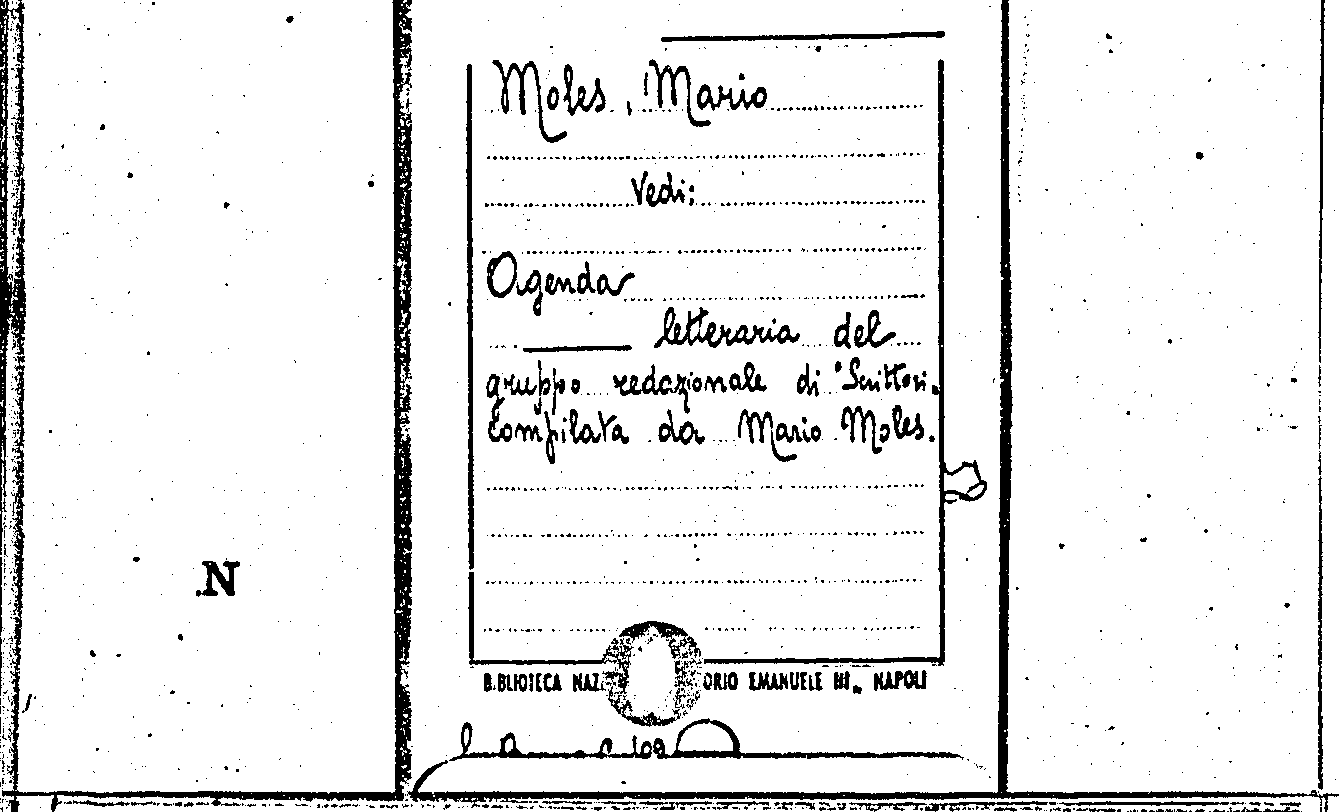 Moles, Mario
Vedi:
Agenda
letteraria del
gruppo redazionale di "Scrittori"
Compilata da Mario Moles.
N.
BIBLIOTECA EMANUELE III NAPOLI